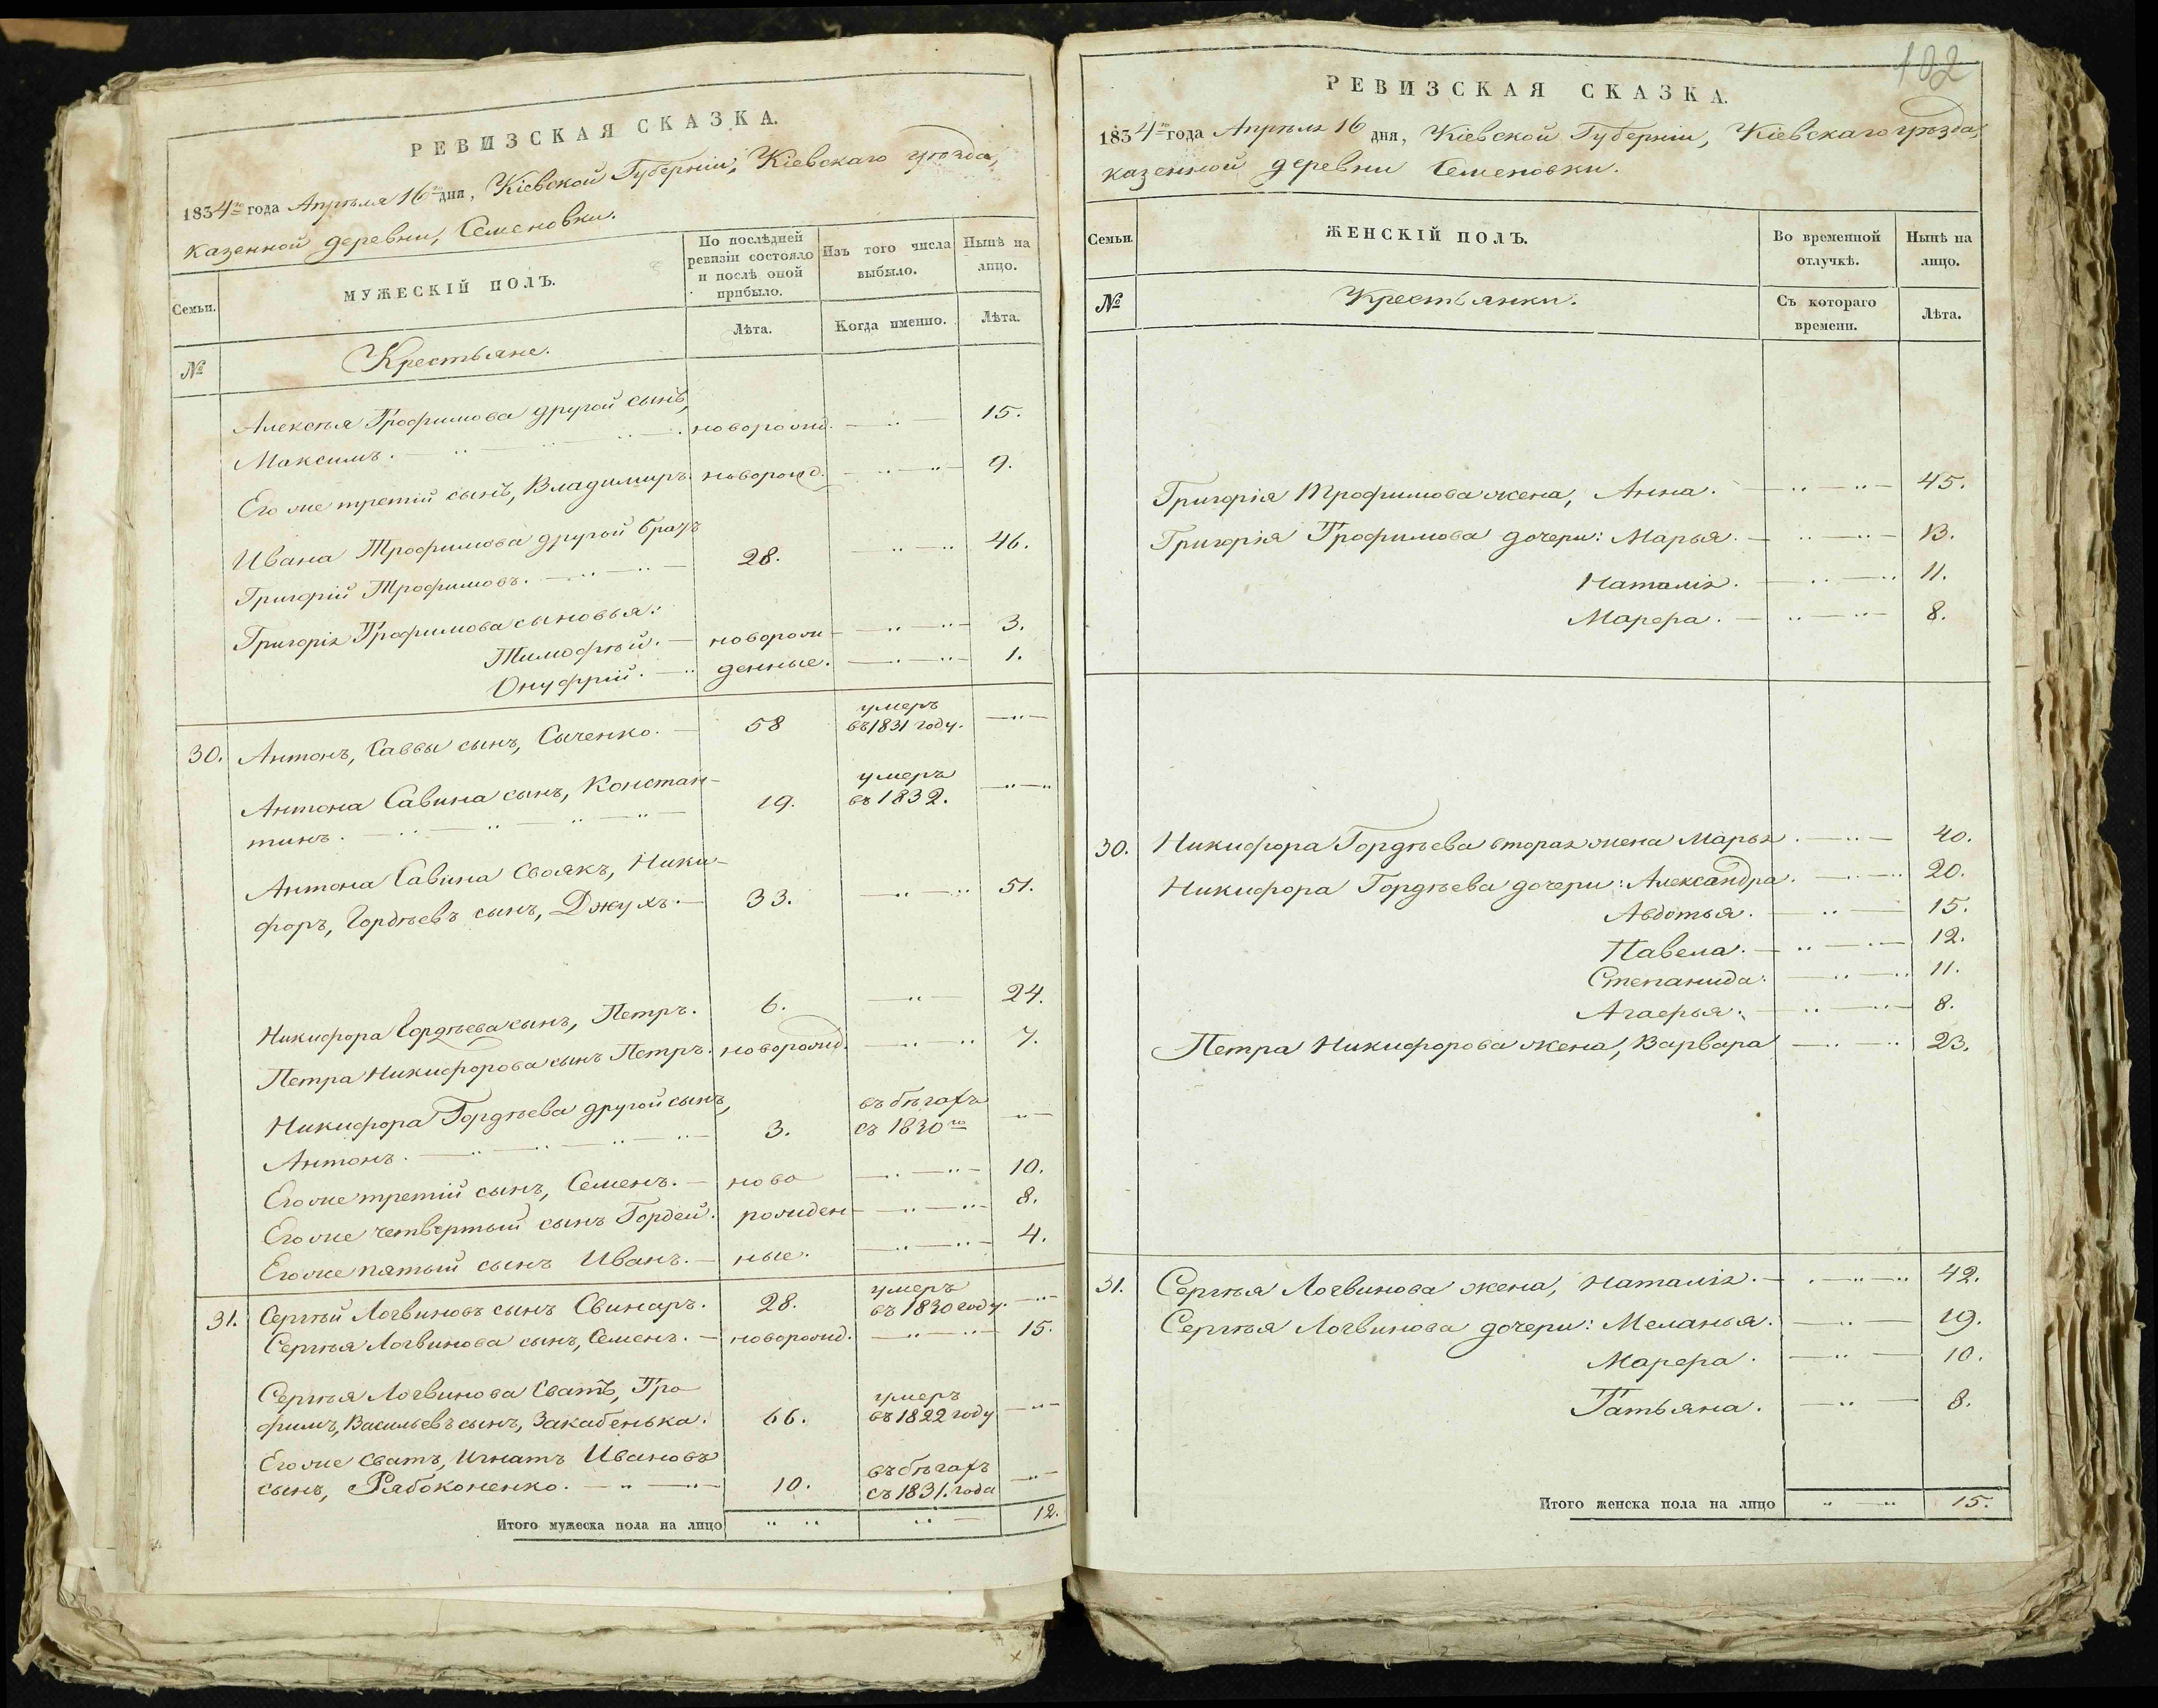 РЕВИЗСКАЯ СКАЗКА.
1834го года Апрѣля 16го дня, Кіевской Губерніи, Кіевскаго уѣзда,
казенной деревни, Семеновки.
Семьи.
МУЖЕСКІЙ ПОЛЪ.
По послѣдней
ревизіи состояло
и послѣ оной
прибыло.
Изъ того числа
выбыло.
Нынѣ на
лицо.
Лѣта.
Когда именно.
Лѣта.
№
Крестьяне.
Алексѣя Трофимова другой сынъ,
Максимъ. новорожд. 15.
Его же третій сынъ, Владимиръ. новорожд. 9.
Ивана Трофимова другой братъ
Григорій Трофимовъ. 28. 46.
Григорія Трофимова сыновья:
Тимофѣй. новорож- 3.
Онуфрій. денные. 1.
30. Антонъ, Саввы сынъ, Сыченко. 58 умеръ въ 1831 году.
Антона Савина сынъ, Констан-
тинъ. 19. умеръ въ 1832.
Антона Савина Своякъ, Ники-
форъ, Гордѣевъ сынъ, Джухъ. 33. 51.
Никифора Гордѣева сынъ, Петръ. 6. 24.
Петра Никифорова сынъ Петръ. новорожд. 7.
Никифора Гордѣева другой сынъ,
Антонъ. 3. въ бѣгахъ съ 1830го
Его же третій сынъ, Семенъ. ново 10.
Его же четвертый сынъ Гордей. рожден- 8.
Его же пятый сынъ Иванъ. ные. 4.
31. Сергѣй Логвиновъ сынъ Свинаръ. 28. умеръ въ 1830 году.
Сергѣя Логвинова сынъ, Семенъ. новорожд. 15.
Сергѣя Логвинова Сватъ, Тро-
фимъ, Васильевъ сынъ, Закабенька. 66. умеръ въ 1822 году
Его же Сватъ, Игнатъ Ивановъ
сынъ, Рябоконенко. 10. въ бѣгахъ съ 1831. года
Итого мужеска пола на лицо 12.
102
РЕВИЗСКАЯ СКАЗКА.
1834го года Апрѣля 16 дня, Кіевской Губерніи, Кіевскаго уѣзда,
казенной деревни Семеновки.
Семьи.
ЖЕНСКІЙ ПОЛЪ.
Во временной
отлучкѣ.
Нынѣ на
лицо.
№
Крестьянки.
Съ котораго
времени.
Лѣта.
Григорія Трофимова жена, Анна. 45.
Григорія Трофимова дочери: Марья. 13.
Наталія. 11.
Марфа. 8.
30. Никифора Гордѣева вторая жена Марья. 40.
Никифора Гордѣева дочери: Александра. 20.
Авдотья. 15.
Павела. 12.
Степанида. 11.
Агафья. 8.
Петра Никифорова жена, Варвара 23.
31. Сергѣя Логвинова жена, Наталія. 42.
Сергѣя Логвинова дочери: Меланья. 19.
Марфа. 10.
Татьяна. 8.
Итого женска пола на лицо 15.